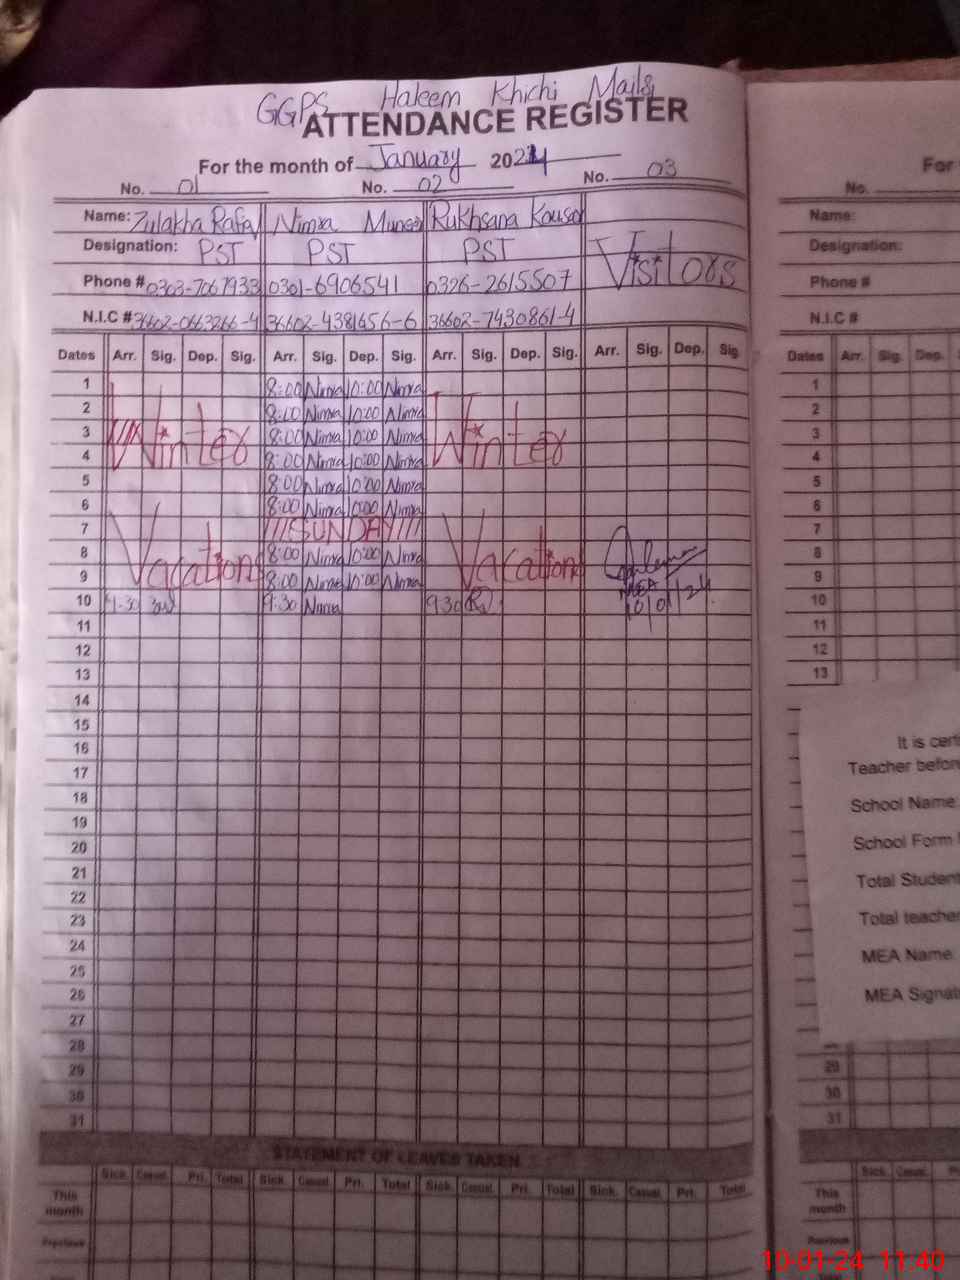 GGPS Hakeem Khichi Mails
ATTENDANCE REGISTER
For the month of January 2024
No. 01 No. 02 No. 03
Name: Zulakha Rafa Nimra Muneer Rukhsana Kousar
Designation: PST PST PST Visitors
Phone # 0303-7067933 0301-6906541 0326-2615507
N.I.C # 36602-0663266-4 36602-4381656-6 36602-7430861-4
Dates Arr. Sig. Dep. Sig. Arr. Sig. Dep. Sig. Arr. Sig. Dep. Sig. Arr. Sig. Dep. Sig
1 8:00 Nimra 10:00 Nimra
2 8:00 Nimra 10:00 Nimra
3 Winter 8:00 Nimra 10:00 Nimra Winter
4 8:00 Nimra 10:00 Nimra
5 8:00 Nimra 10:00 Nimra
6 8:00 Nimra 10:00 Nimra
7 SUNDAY
8 Vacations 8:00 Nimra 10:00 Nimra Vacations
9 8:00 Nimra 10:00 Nimra MEA
10 9:30 9:30 Nimra 9:30 10/01/24
11
12
13
14
15
16
17
18
19
20
21
22
23
24
25
26
27
28
29
30
31
STATEMENT OF LEAVES TAKEN
Sick. Casual. Pri. Total Sick. Casual. Pri. Total Sick. Casual. Pri. Total Sick. Casual. Pri. Total
This month
Previous
For
No.
Name:
Designation:
Phone #
N.I.C #
Dates Arr. Sig. Dep.
1
2
3
4
5
6
7
8
9
10
11
12
13
It is cert
Teacher before
School Name
School Form
Total Student
Total teacher
MEA Name
MEA Signat
29
30
31
Sick. Casual.
This month
Previous
10-01-24 11:40